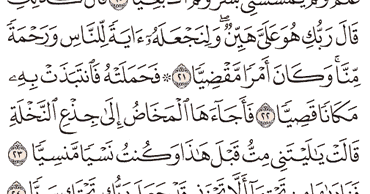 غُلَٰمٌ وَلَمْ يَمْسَسْنِى بَشَرٌ وَلَمْ أَكُ بَغِيًّا ٢٠ قَالَ كَذَٰلِكِ
قَالَ رَبُّكِ هُوَ عَلَىَّ هَيِّنٌ ۖ وَلِنَجْعَلَهُۥٓ ءَايَةً لِّلنَّاسِ وَرَحْمَةً
مِّنَّا ۚ وَكَانَ أَمْرًا مَّقْضِيًّا ٢١ ۞ فَحَمَلَتْهُ فَٱنتَبَذَتْ بِهِۦ
مَكَانًا قَصِيًّا ٢٢ فَأَجَآءَهَا ٱلْمَخَاضُ إِلَىٰ جِذْعِ ٱلنَّخْلَةِ
قَالَتْ يَٰلَيْتَنِى مِتُّ قَبْلَ هَٰذَا وَكُنتُ نَسْيًا مَّنسِيًّا ٢٣
فَنَادَىٰهَا مِن تَحْتِهَآ أَلَّا تَحْزَنِى قَدْ جَعَلَ رَبُّكِ تَحْتَكِ سَرِيًّا ٢٤